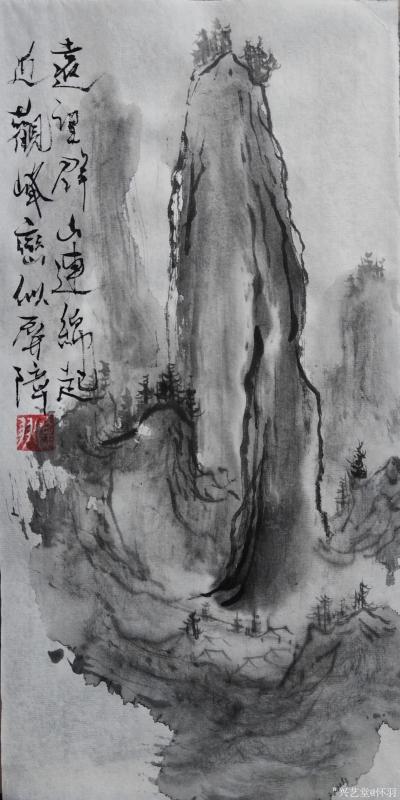 遠望群山連綿起
近觀峰巒似屏障
兴艺堂@怀羽